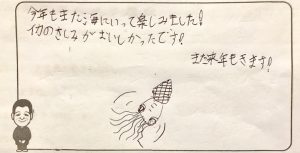 今年もまた海にいって楽しみました!
イカのさしみがおいしかったです!
また来年もきます!